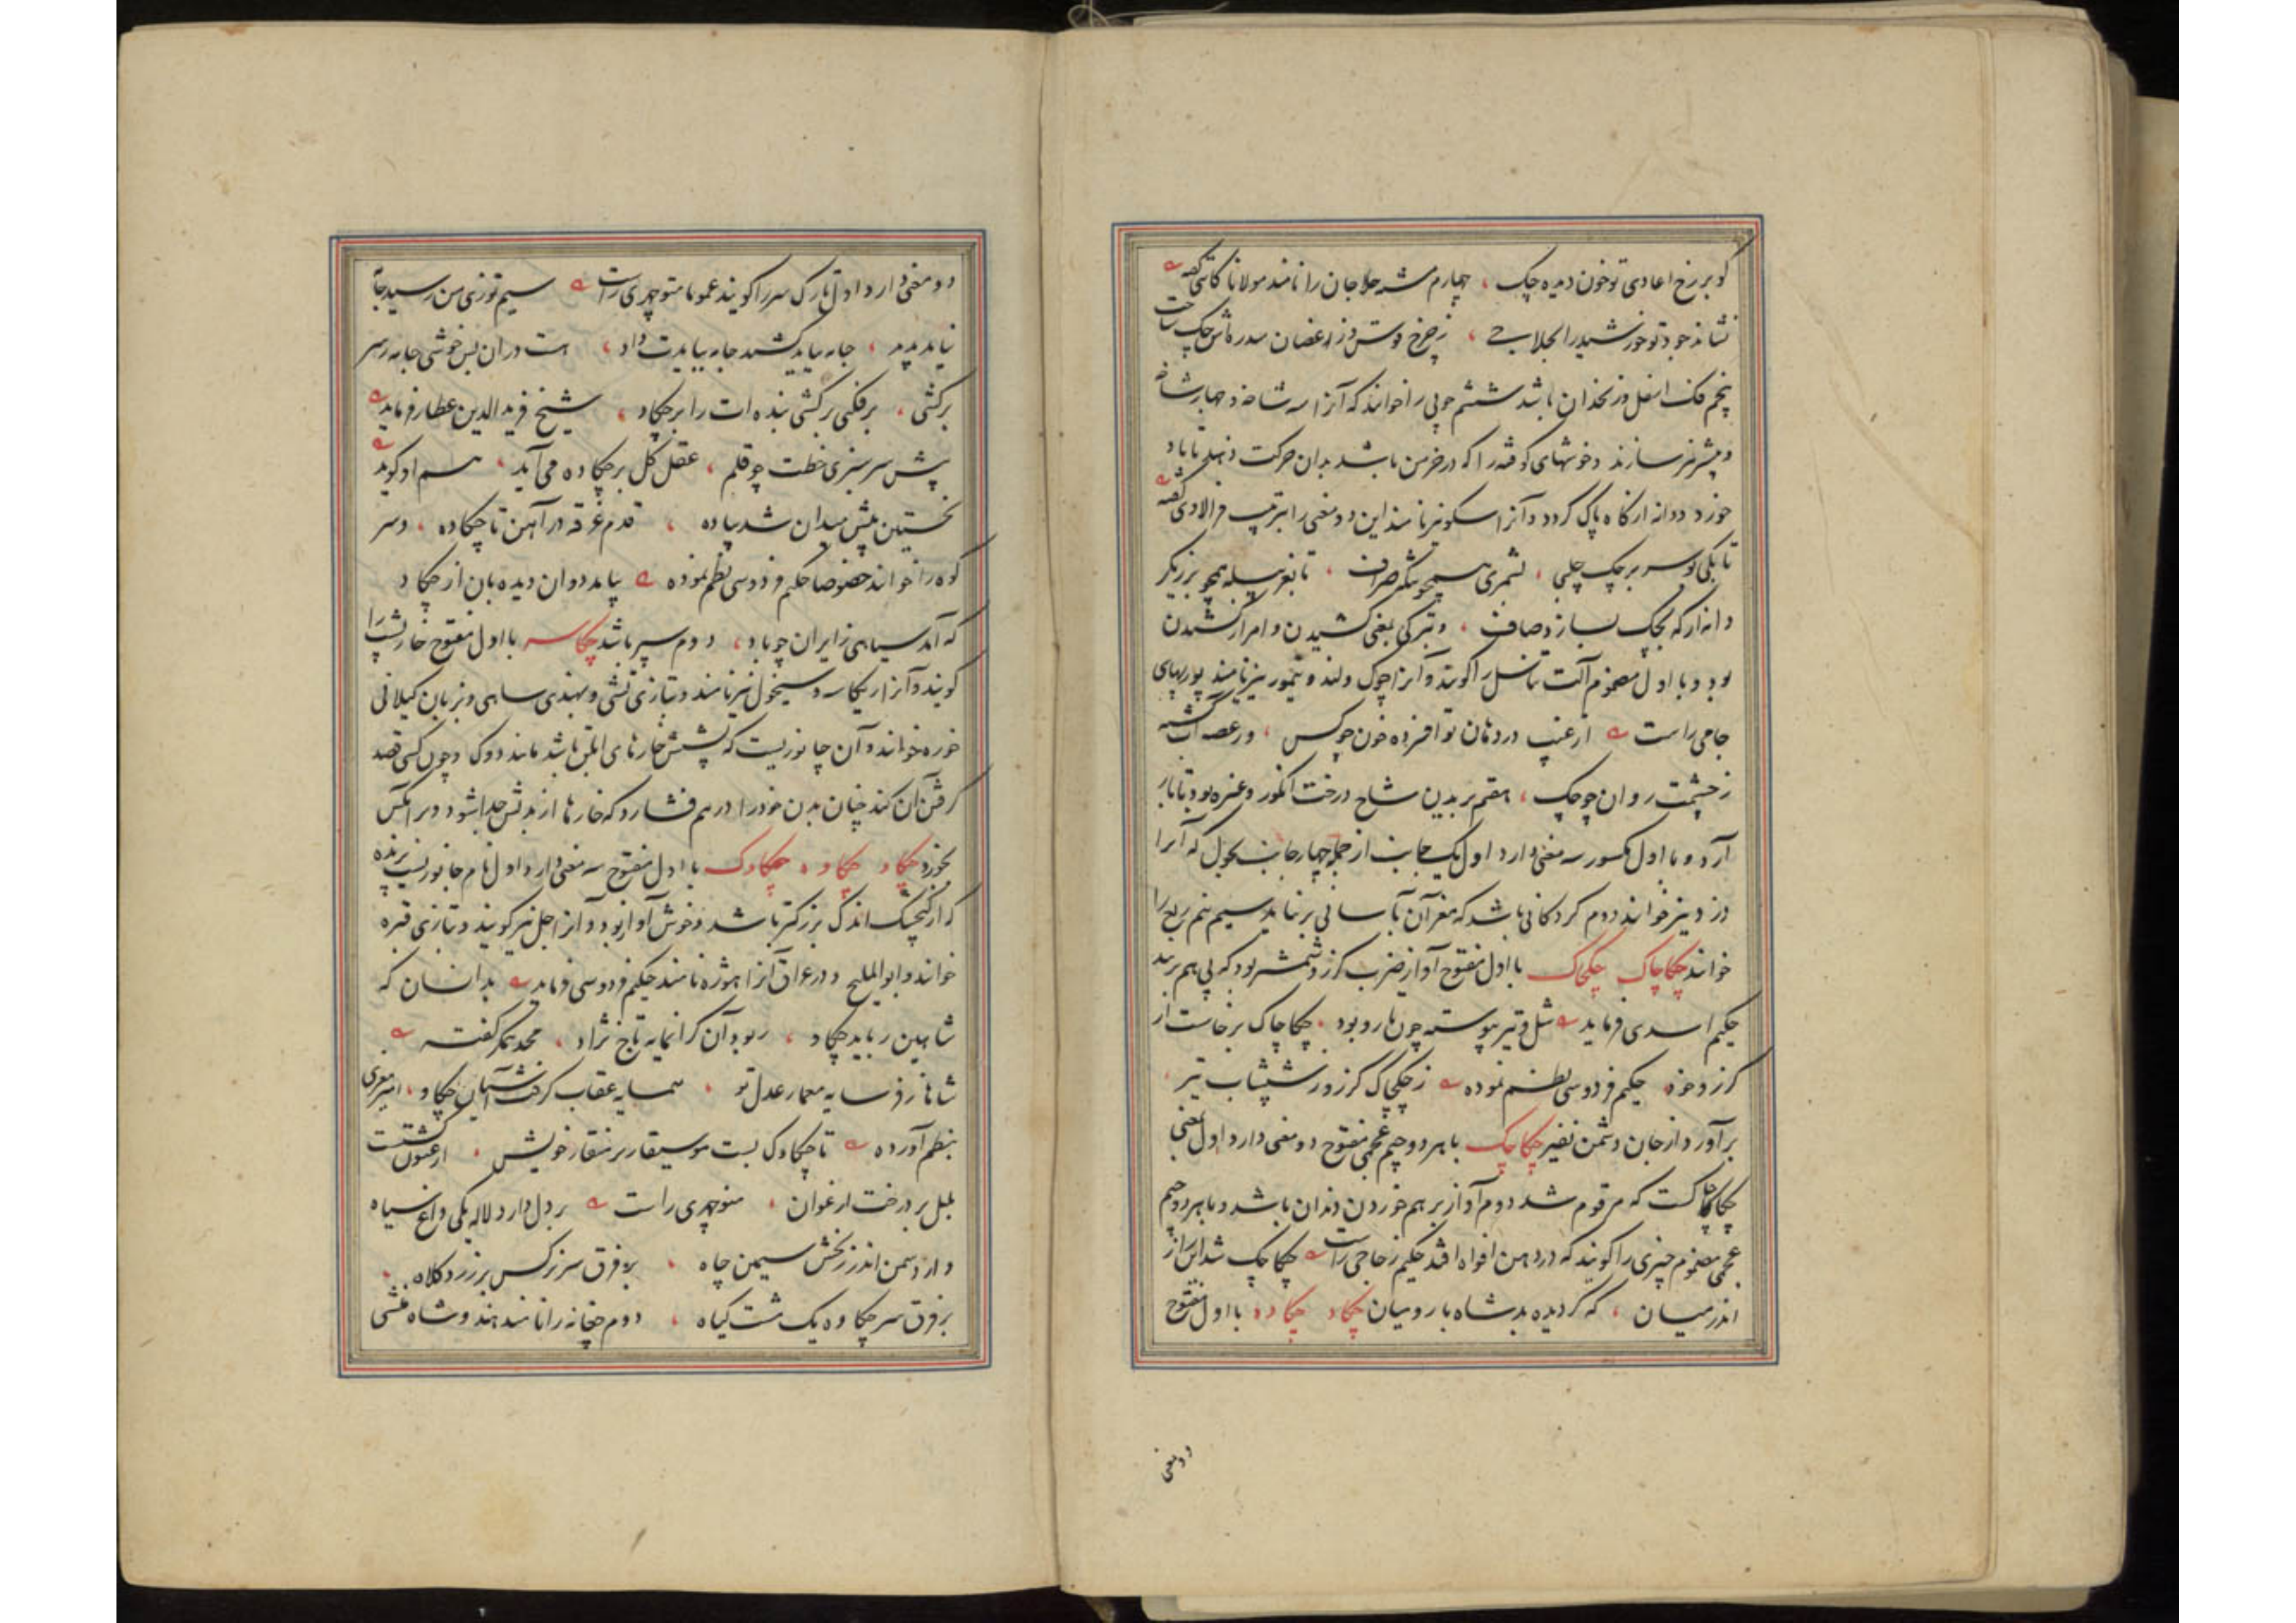 کو بر رخ اعادی تو خون دیده چک ، چهارم مشته حلاجان را نامند مولانا کاتبی گفته
نشاند جود تو خورشید را بحلاجی ، ز چرخ قوس و ز اغصان سدره‌اش چک ساخت
پنجم فک اسفل و زنخدان باشد ششم چوبی را خوانند که آنرا سه شاخه و چهار شاخه
و بیشتر نیز سازند و خوشهای کوفته را که در خرمن باشد بدان حرکت دهند تا باد
خورد و دانه از کاه پاک کردد و آنرا سکو نیز نامند این دو معنی را بترتیب فرالاوی گفته
تا یکی کوسه بر چک حلجی ، بشمری همچو سکه صراف ، تا بغربیله همچو برزیگر
دانه از که بچک بسازد صاف ، و بترکی بمعنی کشیدن و امر از کشیدن
بود و با اول مضموم آلت تناسل را کویند و آنرا چوک و لند و نیمور نیز نامند پوربهای
جامی راست از عیب در دهان تو افسرده خون چو کس ، و ز غصه آب کشته
ز چشمت روان چو چک ، هفتم بریدن شاخ درخت انگور و غیره بود تا بار
آرد و با اول مکسور سه معنی دارد اول یک جانب از جمله چهار جانب بجول که آنرا
دزد نیز خوانند دوم کردکانی باشد که مغز آن بآسانی بر نیاید سیم نیم ربع را
خوانند چکاچاک چکچاک با اول مفتوح آواز ضرب کرز و شمشیر بود که پی هم زنند
حکیم اسدی فرماید شل و تیر پیوسته چون تار و پود ، چکاچاک برخاست از
کرز و خود حکیم فردوسی نظم نموده ز چکچاک کرز و ز شیشاب تیر ،
بر آورد از جان دشمن نفیر چکاچک با هر دو جیم عجمی مفتوح دو معنی دارد اول بمعنی
چکاچاکست که مرقوم شد دوم آواز بر هم خوردن دندان باشد و با هر دو جیم
عجمی مضموم چیزی را کویند که در دهن افواه افتد حکیم زجاجی راست چکاچک شد این راز
اندر میان ، که کردیده بد شاه با رومیان چکاد چکاده با اول مفتوح
دو معنی
دو معنی دارد اول تارک سر را کویند عموما منوچهری راست سیم توزی من رسید جا
نیاید پدید ، جابه بباید کشید جابه ببایدت داد ، هست در ان بس خوشی جابه بسر
برکشی ، برفکنی برکشی بنده‌ات را بر چکاد ، شیخ فرید الدین عطار فرماید
پیش سرسبزی خطت چو قلم ، عقل کل بر چکاده می‌آید ، هم او کوید
نخستین پیش میدان شد پیاده ، قدم غرقه در آهن تا چکاده ، و سر
کوه را خوانند خصوصا حکیم فردوسی نظم نموده بیامد دوان دیده بان از چکاد
که آمد سپاهی ز ایران چو باد ، دوم سپر باشد چکاسه با اول مفتوح خارپشت را
کویند و آنرا ریکاسه و سیخول نیز نامند و بتازی تشی و بهندی ساهی و بزبان کیلانی
خوره خوانند و آن جانوریست که پشتش خارهای ابلق باشد مانند دوک و چون کسی قصد
کرفتن آن کند چنان بدن خود را در هم فشارد که خارها از بدنش جدا شود و بر آنکس
بخورد چکاو چکاوه چکاوک با اول مفتوح سه معنی دارد اول نام جانوریست پرنده
که از کنجشک اندک بزرکتر باشد و خوش آواز بود و آنرا جل نیز کویند و بتازی قبره
خوانند و ابو الملیح و در عراق آنرا هوژه نامند حکیم فردوسی فرماید بدانسان که
شاهین رباید چکاو ، ربود آن کرانمایه تاج نژاد ، محمد همکر گفته
شاها ز فر سایه معمار عدل تو ، همسایه عقاب گرفت آشیان چکاو ، امیر معزی
بنظم آورده تا چکاوک بست موسیقار بر منقار خویش ، ارغنون بست
بلبل بر درخت ارغوان ، منوچهری راست بر دل دارد لاله یکی داغ سیاه
دارد سمن اندر زنخش سیمین چاه ، بر فرق سر نرکس بر زرد کلاه ،
بر فرق سر چکاوه یک مشت کیاه ، دوم چغانه را نامند هندوشاه منشی